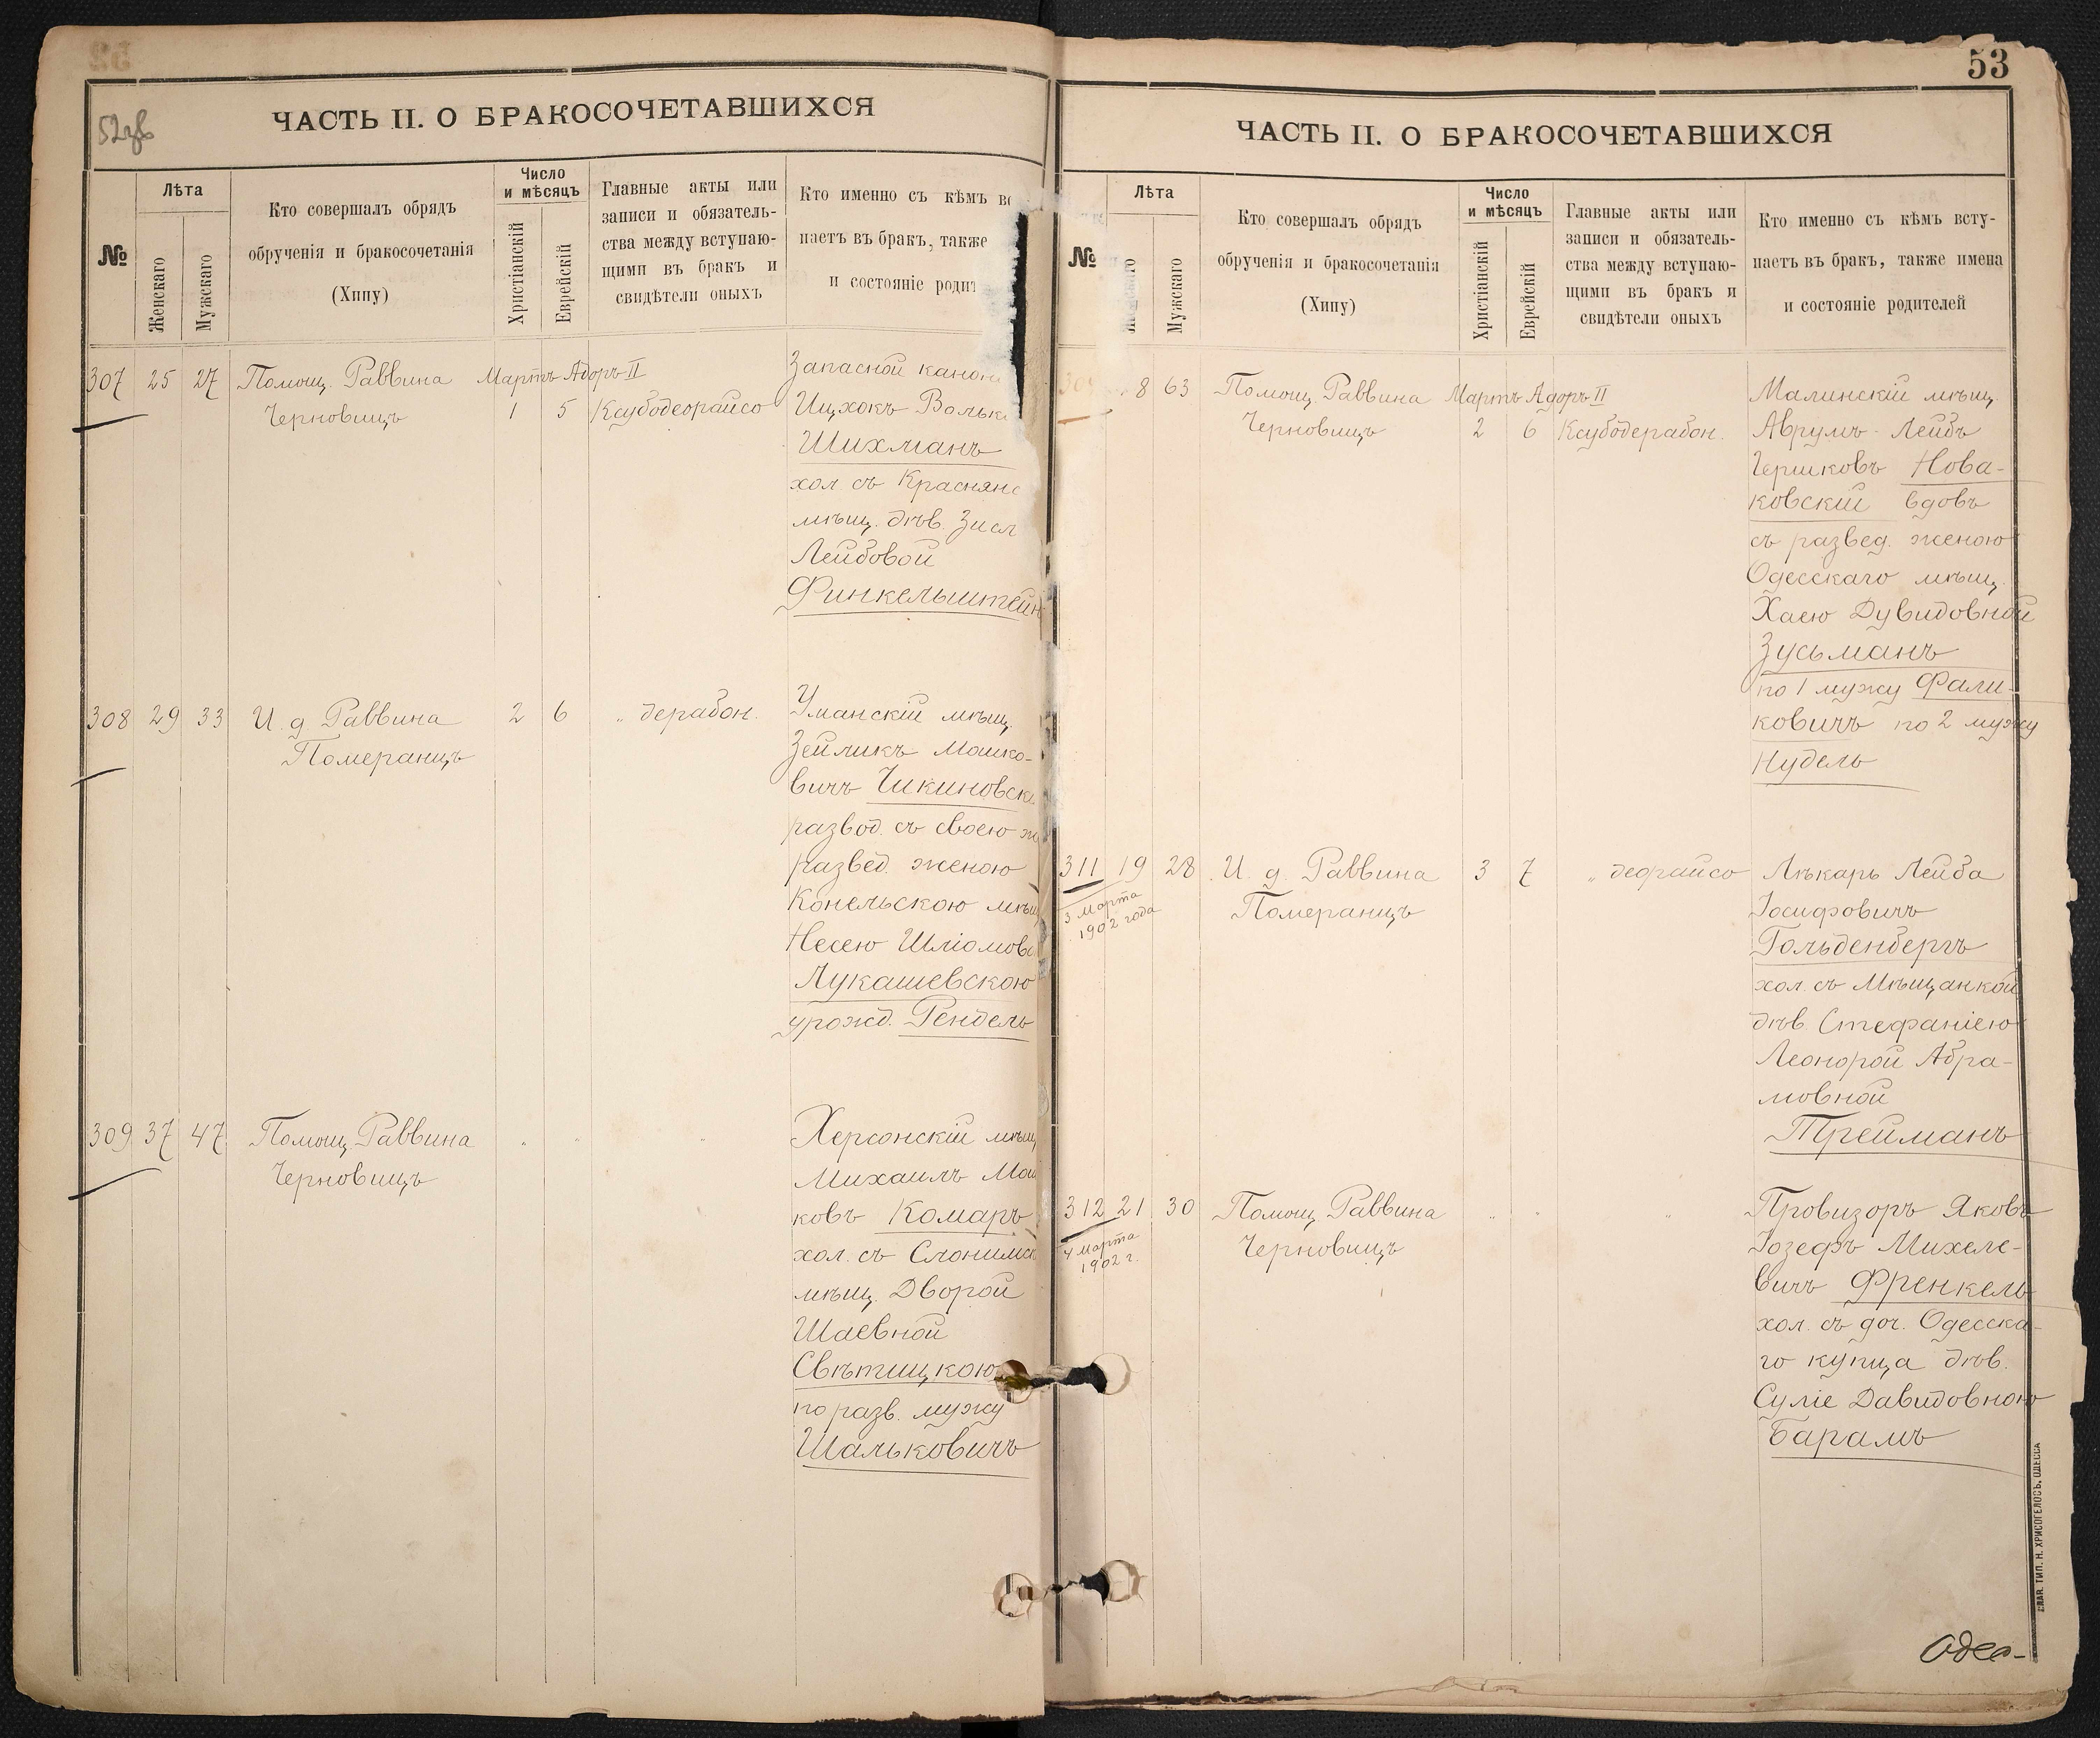 52
52об
ЧАСТЬ II. О БРАКОСОЧЕТАВШИХСЯ
№
Лѣта
Женскаго
Мужскаго
Кто совершалъ обрядъ
обрученія и бракосочетанія
(Хипу)
Число
и мѣсяцъ
Христіанскій
Еврейскій
Главные акты или
записи и обязатель-
ства между вступаю-
щими въ бракъ и
свидѣтели оныхъ
Кто именно съ кѣмъ вс
паетъ въ бракъ, также
и состояніе родит
307 25 27 Помощ. Раввина Мартъ Адоръ II
Черновицъ 1 5 Ксубодеорайсо
Запасной канон
Ицхокъ Вольк
Шихманъ
хол. съ Краснянс
мѣщ. дѣв. Зисл
Лейбовой
Финкельштейн
308 29 33 И. д Раввина 2 6 „ дерабон.
Померанцъ
Уманскій мѣщ.
Зейликъ Мошко-
вичъ Чикиновск
развод. съ своею ж
развед. женою
Конельскою мѣщ
Несею Шліомов
Лукашевскою
урожд. Рендель
309 37 47 Помощ. Раввина „ „ „
Черновицъ
Херсонскій мѣщ
Михаилъ Мош
ковъ Комаръ
хол. съ Слонимск
мѣщ. Дворой
Шаевной
Свѣтицкою
по разв. мужу
Шальковичъ
53
ЧАСТЬ II. О БРАКОСОЧЕТАВШИХСЯ
№
Лѣта
Мужскаго
Кто совершалъ обрядъ
обрученія и бракосочетанія
(Хипу)
Число
и мѣсяцъ
Христіанскій
Еврейскій
Главные акты или
записи и обязатель-
ства между вступаю-
щими въ бракъ и
свидѣтели оныхъ
Кто именно съ кѣмъ всту-
паетъ въ бракъ, также имена
и состояніе родителей
8 63 Помощ. Раввина Мартъ Адоръ II
Черновицъ 2 6 Ксубодерабон.
Малинскій мѣщ.
Аврумъ-Лейбъ
Гершковъ Нова-
ковскій вдовъ
съ развед. женою
Одесскаго мѣщ.
Хаею Дувидовной
Зусьманъ
по 1 мужу Фали-
ковичъ по 2 мужу
Нудель
311 19 28 И. д. Раввина 3 7 „ деорайсо
3 марта
1902 года
Померанцъ
Лѣкарь Лейба
Іосифовичъ
Гольденбергъ
хол. съ Мѣщанкой
дѣв. Стефаніею
Леонорой Абра-
мовной
Трейманъ
312 21 30 Помощ. Раввина „ „ „
4 марта
1902 г.
Черновицъ
Провизоръ Яковъ
Іозефъ Михеле-
вичъ Френкель
хол. съ доч. Одесска-
го купца дѣв.
Суліе Давидовною
Барамъ
СЛАВ. ТИП. Н. ХРИСОГЕЛОСЪ, ОДЕССА
Одес-